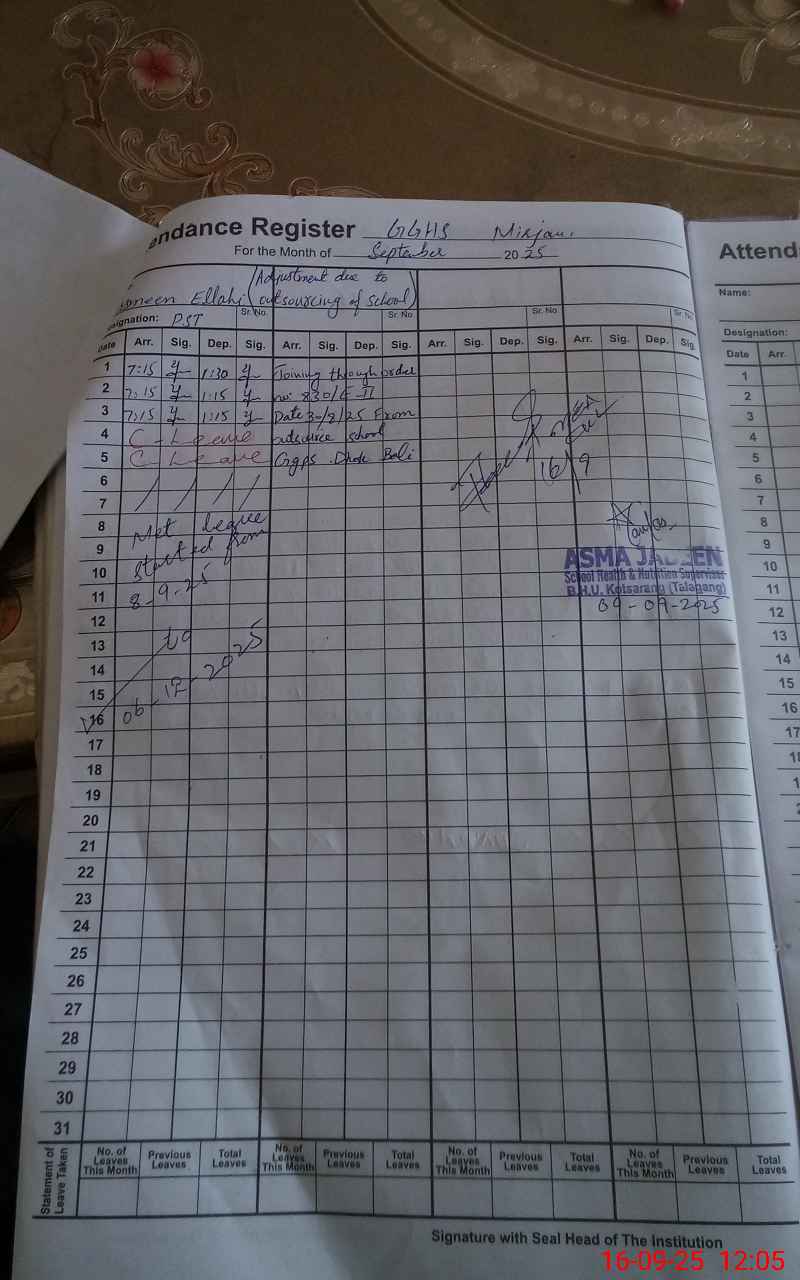 endance Register GGHS Mirjan.
For the Month of September 2025
Ellahi (Adjustment due to
outsourcing of school)
signation: PST Sr. No. Sr. No. Sr. No Sr. No
Date Arr. Sig. Dep. Sig. Arr. Sig. Dep. Sig. Arr. Sig. Dep. Sig. Arr. Sig. Dep. Sig.
1 7:15 1:30 Joining through order
2 7:15 1:15 no: 830/E-II
3 7:15 1:15 Date 30/8/25 From
4 C-Leave outsource school
5 C-Leave Ggps Dhok Bali
6
7
8 Met leave
9 started from
10
11 8-9-25
12
13 to
14
15
16 06-12-2025
17
18
19
20
21
22
23
24
25
26
27
28
29
30
31
16/9
ASMA JABEEN
School Health & Nutrition Supervisor
B.H.U. Kotsarang (Talagang)
09-09-2025
Statement of Leave Taken
No. of Leaves This Month Previous Leaves Total Leaves No. of Leaves This Month Previous Leaves Total Leaves No. of Leaves This Month Previous Leaves Total Leaves No. of Leaves This Month Previous Leaves Total Leaves
Signature with Seal Head of The Institution
Attend
Name:
Designation:
Date Arr.
1
2
3
4
5
6
7
8
9
10
11
12
13
14
15
16
17
16-09-25 12:05